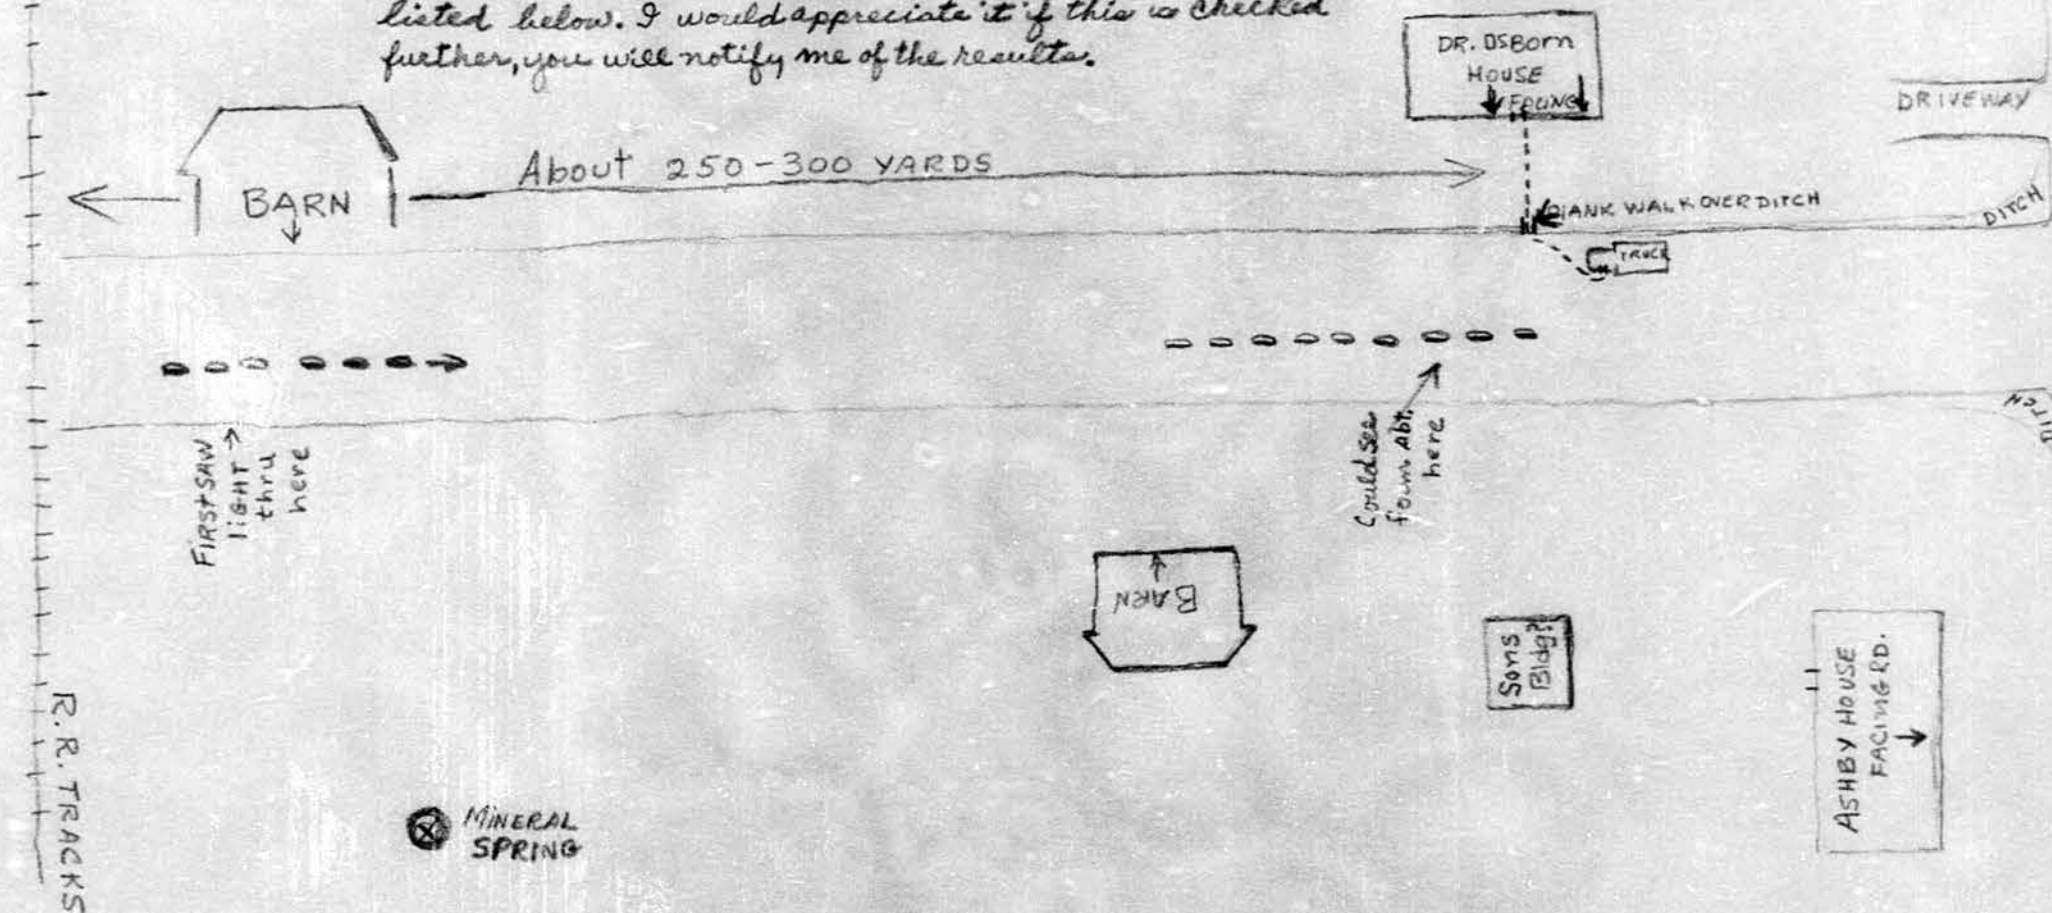 listed below. I would appreciate it if this is checked
further, you will notify me of the results.
DR. OSBORN
HOUSE
FACING
DRIVEWAY
About 250-300 YARDS
BARN
PLANK WALK OVER DITCH
DITCH
TRUCK
FIRST SAW
LIGHT
thru
here
Could see
form Abt.
here
DITCH
BARN
Sons
Bldg?
ASHBY HOUSE
FACING RD.
R.R. TRACKS
MINERAL
SPRING